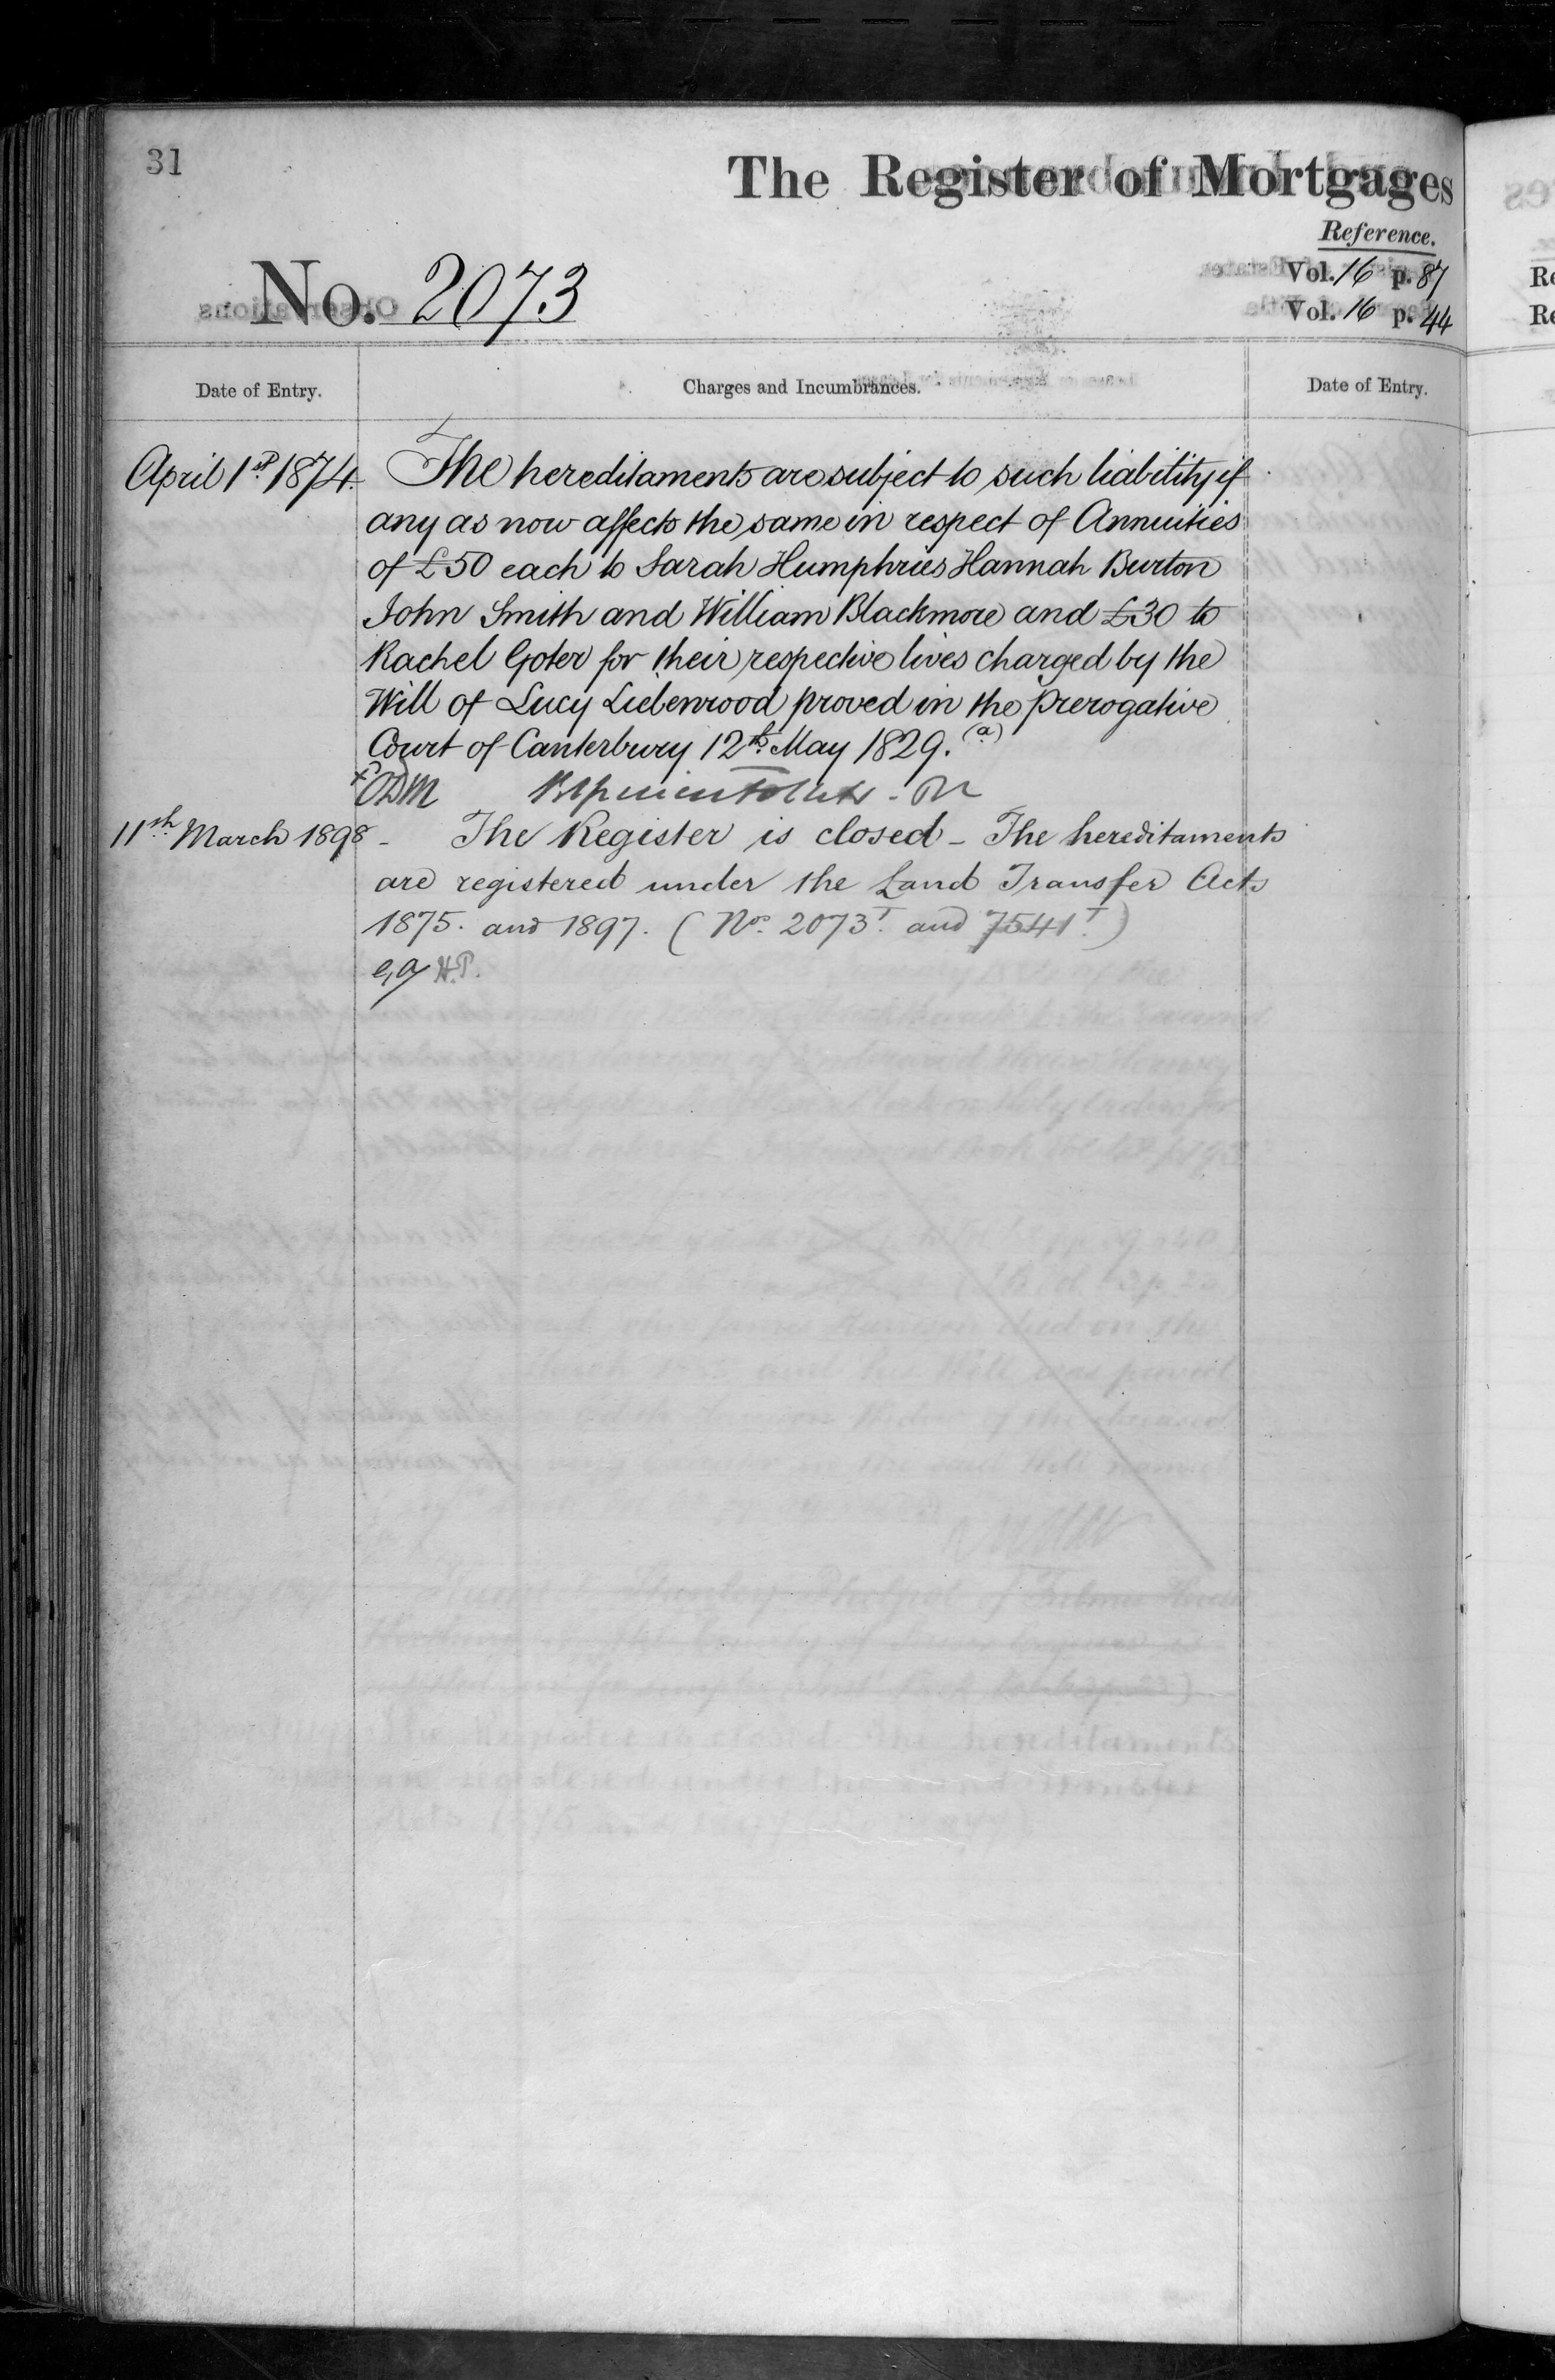 31
The Register of Mortgages
Reference.
No. 2073
Vol. 16 p. 87
Vol. 16 p. 44
Date of Entry.
Charges and Incumbrances.
Date of Entry.
April 1st 1874.
The hereditaments are subject to such liability if
any as now affects the same in respect of Annuities
of £50 each to Sarah Humphries Hannah Burton
John Smith and William Blackmore and £30 to
Rachel Goter for their respective lives charged by the
Will of Lucy Liebenrood proved in the Prerogative
Court of Canterbury 12th May 1829. (a)
11th March 1898 -
The Register is closed - The hereditaments
are registered under the Land Transfer Acts
1875. and 1897. (Nos. 2073T. and 7541T.)
H.P.